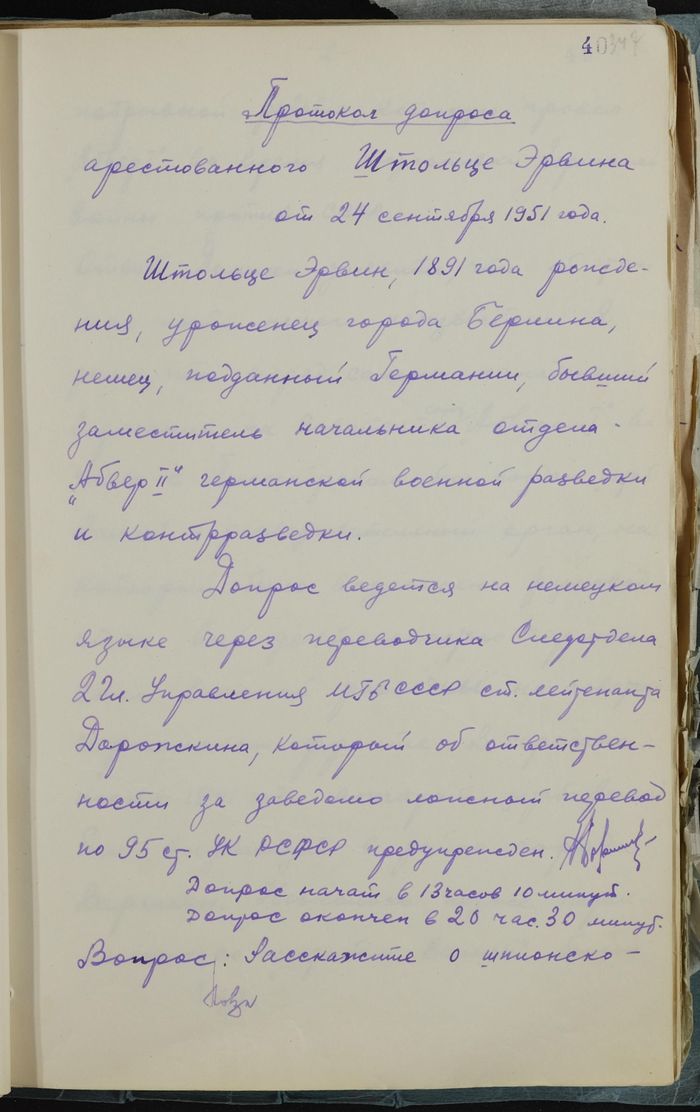 Протокол допроса
арестованного Штольце Эрвина
от 24 сентября 1951 года.
Штольце Эрвин, 1891 года рожде-
ния, уроженец города Берлина,
немец, подданный Германии, бывший
заместитель начальника отдела
"Абвер II" германской военной разведки
и контрразведки.
Допрос ведется на немецком
языке через переводчика Следотдела
2 Гл. Управления МГБ СССР ст. лейтенанта
Дорожкина, который об ответствен-
ности за заведомо ложный перевод
по 95 ст. УК РСФСР предупрежден.
Допрос начат в 13 часов 10 минут.
Допрос окончен в 20 час. 30 минут.
Вопрос: Расскажите о шпионско-